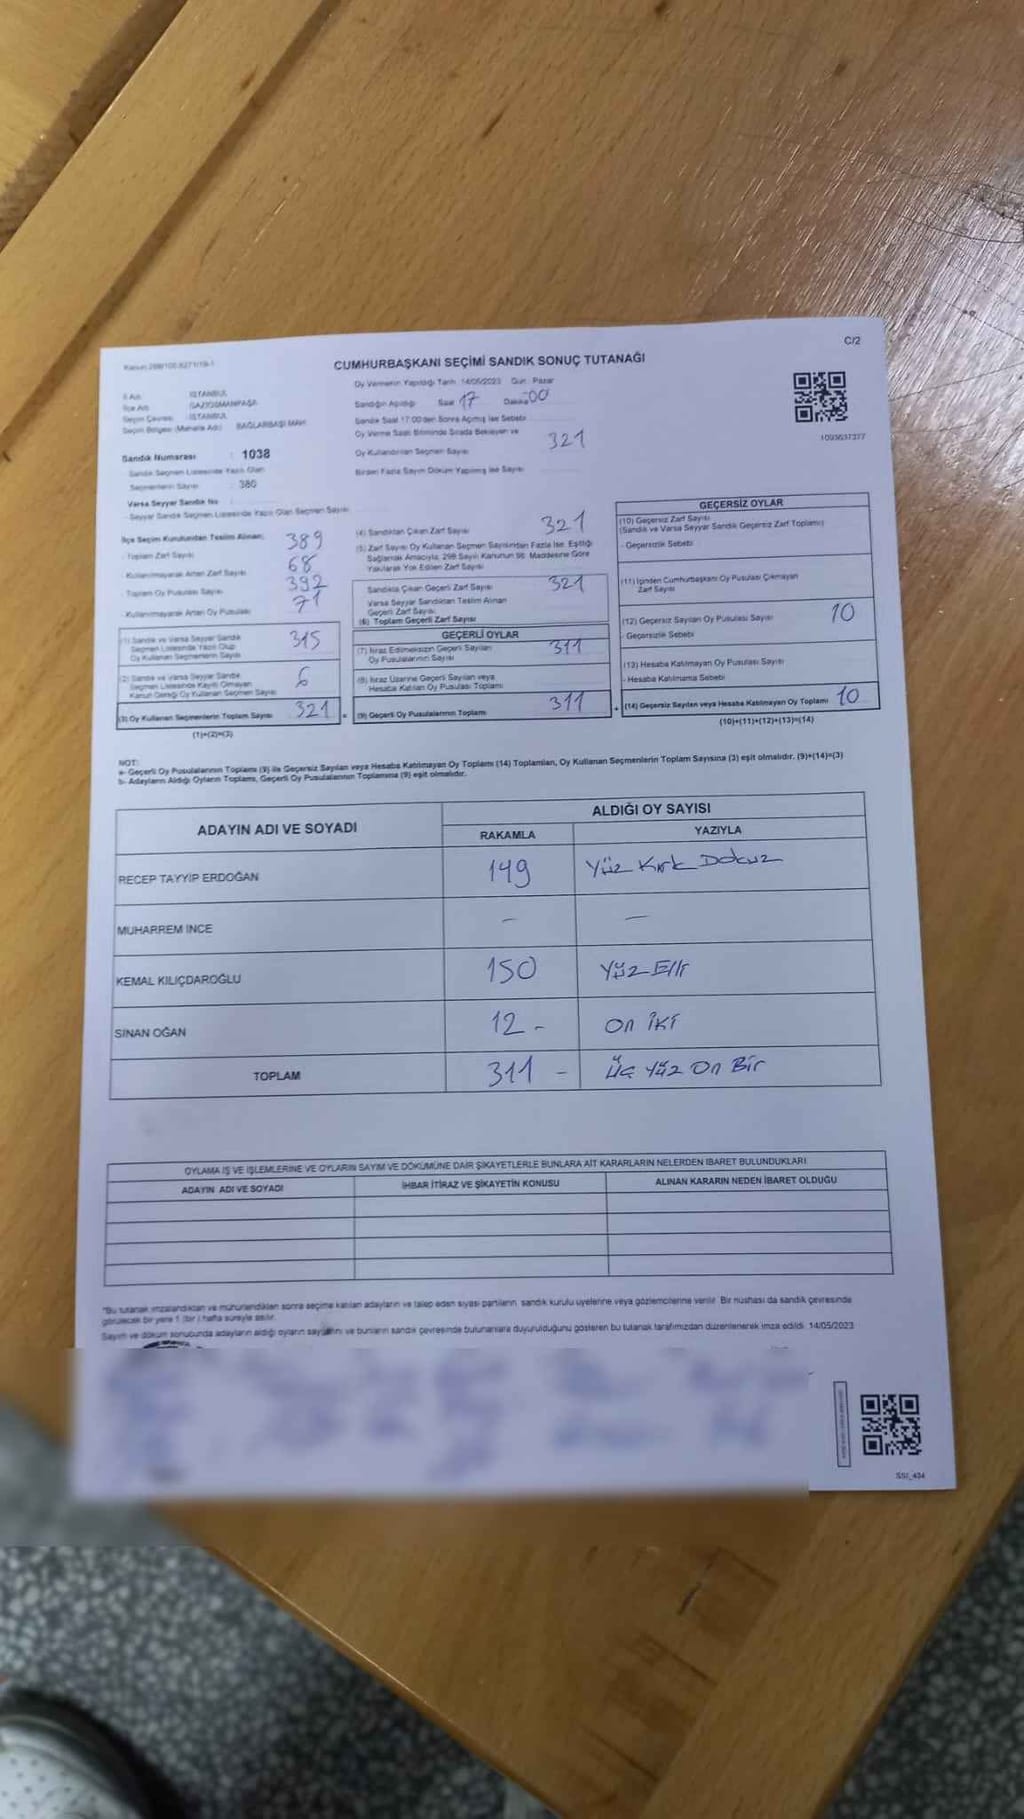 C/2
CUMHURBAŞKANI SEÇİMİ SANDIK SONUÇ TUTANAĞI
Oy Vermenin Yapıldığı Tarih :14/05/2023 Gün : Pazar
İl Adı : İSTANBUL
İlçe Adı : GAZİOSMANPAŞA
Seçim Çevresi : İSTANBUL
Seçim Bölgesi (Mahalle Adı) : BAĞLARBAŞI MAH.
Sandığın Açıldığı Saat 17 Dakika 00
Sandık Saat 17:00'den Sonra Açılmış İse Sebebi
Oy Verme Saati Bitiminde Sırada Bekleyen ve
Oy Kullandırılan Seçmen Sayısı 321
Birden Fazla Sayım Döküm Yapılmış İse Sayısı
1093637377
Sandık Numarası : 1038
Sandık Seçmen Listesinde Yazılı Olan
Seçmenlerin Sayısı : 380
Varsa Seyyar Sandık No :
- Seyyar Sandık Seçmen Listesinde Yazılı Olan Seçmen Sayısı
İlçe Seçim Kurulundan Teslim Alınan;
- Toplam Zarf Sayısı 389
- Kullanılmayarak Artan Zarf Sayısı 68
- Toplam Oy Pusulası Sayısı 392
- Kullanılmayarak Artan Oy Pusulası 71
(1) Sandık ve Varsa Seyyar Sandık
Seçmen Listesinde Yazılı Olup
Oy Kullanan Seçmenlerin Sayısı 315
(2) Sandık ve Varsa Seyyar Sandık
Seçmen Listesinde Kayıtlı Olmayan
Kanun Gereği Oy Kullanan Seçmen Sayısı 6
(3) Oy Kullanan Seçmenlerin Toplam Sayısı 321
(1)+(2)=(3)
(4) Sandıktan Çıkan Zarf Sayısı 321
(5) Zarf Sayısı Oy Kullanan Seçmen Sayısından Fazla İse, Eşitliği
Sağlamak Amacıyla, 298 Sayılı Kanunun 98. Maddesine Göre
Yakılarak Yok Edilen Zarf Sayısı
Sandıkta Çıkan Geçerli Zarf Sayısı 321
Varsa Seyyar Sandıktan Teslim Alınan
Geçerli Zarf Sayısı
(6) Toplam Geçerli Zarf Sayısı
GEÇERLİ OYLAR
(7) İtiraz Edilmeksizin Geçerli Sayılan
Oy Pusulalarının Sayısı 311
(8) İtiraz Üzerine Geçerli Sayılan veya
Hesaba Katılan Oy Pusulası Toplamı
= (9) Geçerli Oy Pusulalarının Toplamı 311
GEÇERSİZ OYLAR
(10) Geçersiz Zarf Sayısı
(Sandık ve Varsa Seyyar Sandık Geçersiz Zarf Toplamı)
- Geçersizlik Sebebi
(11) İçinden Cumhurbaşkanı Oy Pusulası Çıkmayan
Zarf Sayısı
(12) Geçersiz Sayılan Oy Pusulası Sayısı 10
- Geçersizlik Sebebi
(13) Hesaba Katılmayan Oy Pusulası Sayısı
- Hesaba Katılmama Sebebi
+ (14) Geçersiz Sayılan veya Hesaba Katılmayan Oy Toplamı 10
(10)+(11)+(12)+(13)=(14)
NOT:
a- Geçerli Oy Pusulalarının Toplamı (9) ile Geçersiz Sayılan veya Hesaba Katılmayan Oy Toplamı (14) Toplamları, Oy Kullanan Seçmenlerin Toplam Sayısına (3) eşit olmalıdır. (9)+(14)=(3)
b- Adayların Aldığı Oyların Toplamı, Geçerli Oy Pusulalarının Toplamına (9) eşit olmalıdır.
ADAYIN ADI VE SOYADI
ALDIĞI OY SAYISI
RAKAMLA YAZIYLA
RECEP TAYYİP ERDOĞAN 149 Yüz Kırk Dokuz
MUHARREM İNCE - -
KEMAL KILIÇDAROĞLU 150 Yüz Elli
SİNAN OĞAN 12 - On iki
TOPLAM 311 - Üç Yüz On Bir
OYLAMA İŞ VE İŞLEMLERİNE VE OYLARIN SAYIM VE DÖKÜMÜNE DAİR ŞİKAYETLERLE BUNLARA AİT KARARLARIN NELERDEN İBARET BULUNDUKLARI
ADAYIN ADI VE SOYADI İHBAR İTİRAZ VE ŞİKAYETİN KONUSU ALINAN KARARIN NEDEN İBARET OLDUĞU
*Bu tutanak imzalandıktan ve mühürlendikten sonra seçime katılan adayların ve talep eden siyasi partilerin, sandık kurulu üyelerine veya gözlemcilerine verilir. Bir nüshası da sandık çevresinde
görülecek bir yere 1 (bir) hafta süreyle asılır.
Sayım ve döküm sonucunda adayların aldığı oyların sayılarını ve bunların sandık çevresinde bulunanlara duyurulduğunu gösteren bu tutanak tarafımızdan düzenlenerek imza edildi. 14/05/2023
SSI_434